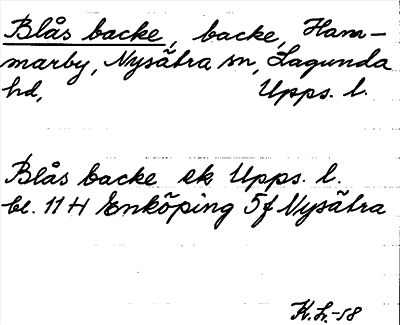 Blås backe, backe, Ham-
marby, Nysätra sn, Lagunda
hd, Upps. l.
Blås backe ek Upps. l.
bl. 11 H Enköping 5f Nysätra
K.L.-58